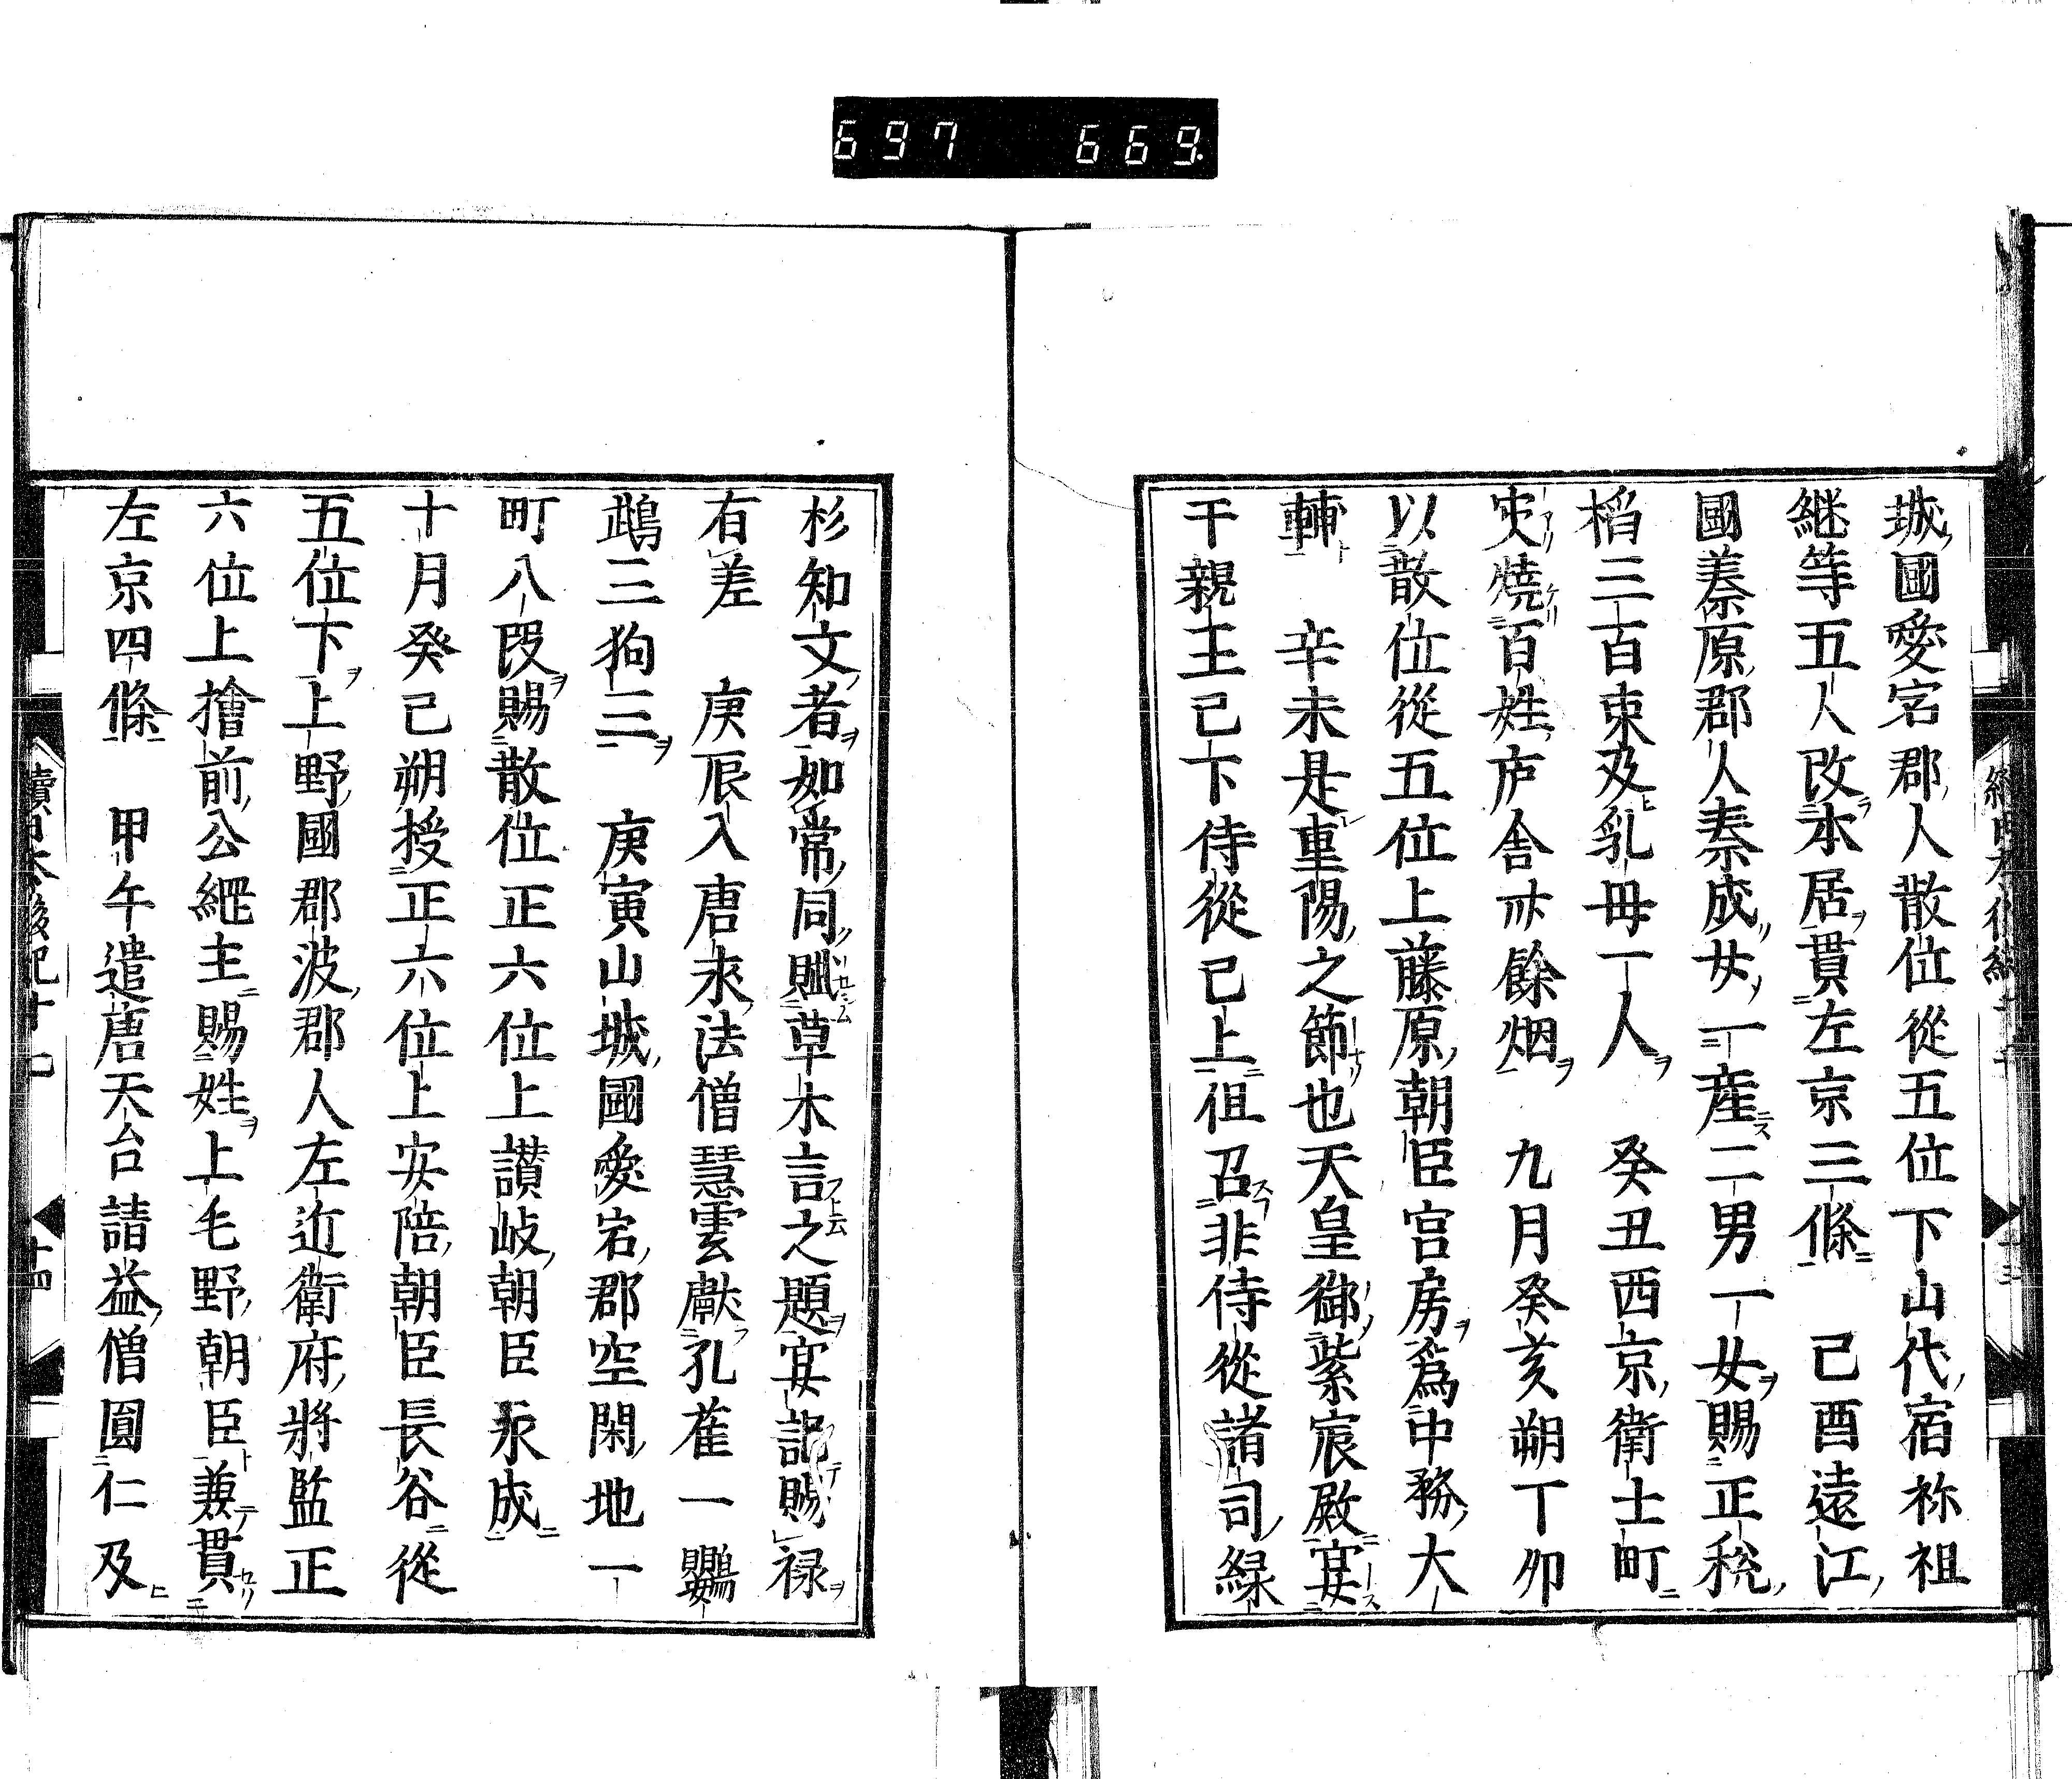 697 669.
城國愛宕郡人散位從五位下山代宿祢祖
継等五人改本居貫左京三條 己酉遠江
國蓁原郡人秦成女一産二男一女賜正税
稲三百束及乳母一人 癸丑西京衛士町
失燒百姓庐舎卅餘烟 九月癸亥朔丁夘
以散位從五位上藤原朝臣宫房爲中務大
輔 辛未是重陽之節也天皇御紫宸殿宴
干親王已下侍從已上徂召非侍從諸司緑
杉知文者如常同賦草木言之題宴訖賜禄
有差 庚辰入唐求法僧慧雲獻孔雀一鸚
鵡三狗三 庚寅山城國愛宕郡空閑地一
町八段賜散位正六位上讃岐朝臣永成
十月癸已朔授正六位上安陪朝臣長谷從
五位下上野國郡波郡人左近衛府將監正
六位上擔前公綱主賜姓上毛野朝臣兼貫
左京四條 甲午遣唐天台請益僧圓仁及
續日本後紀十七 十四